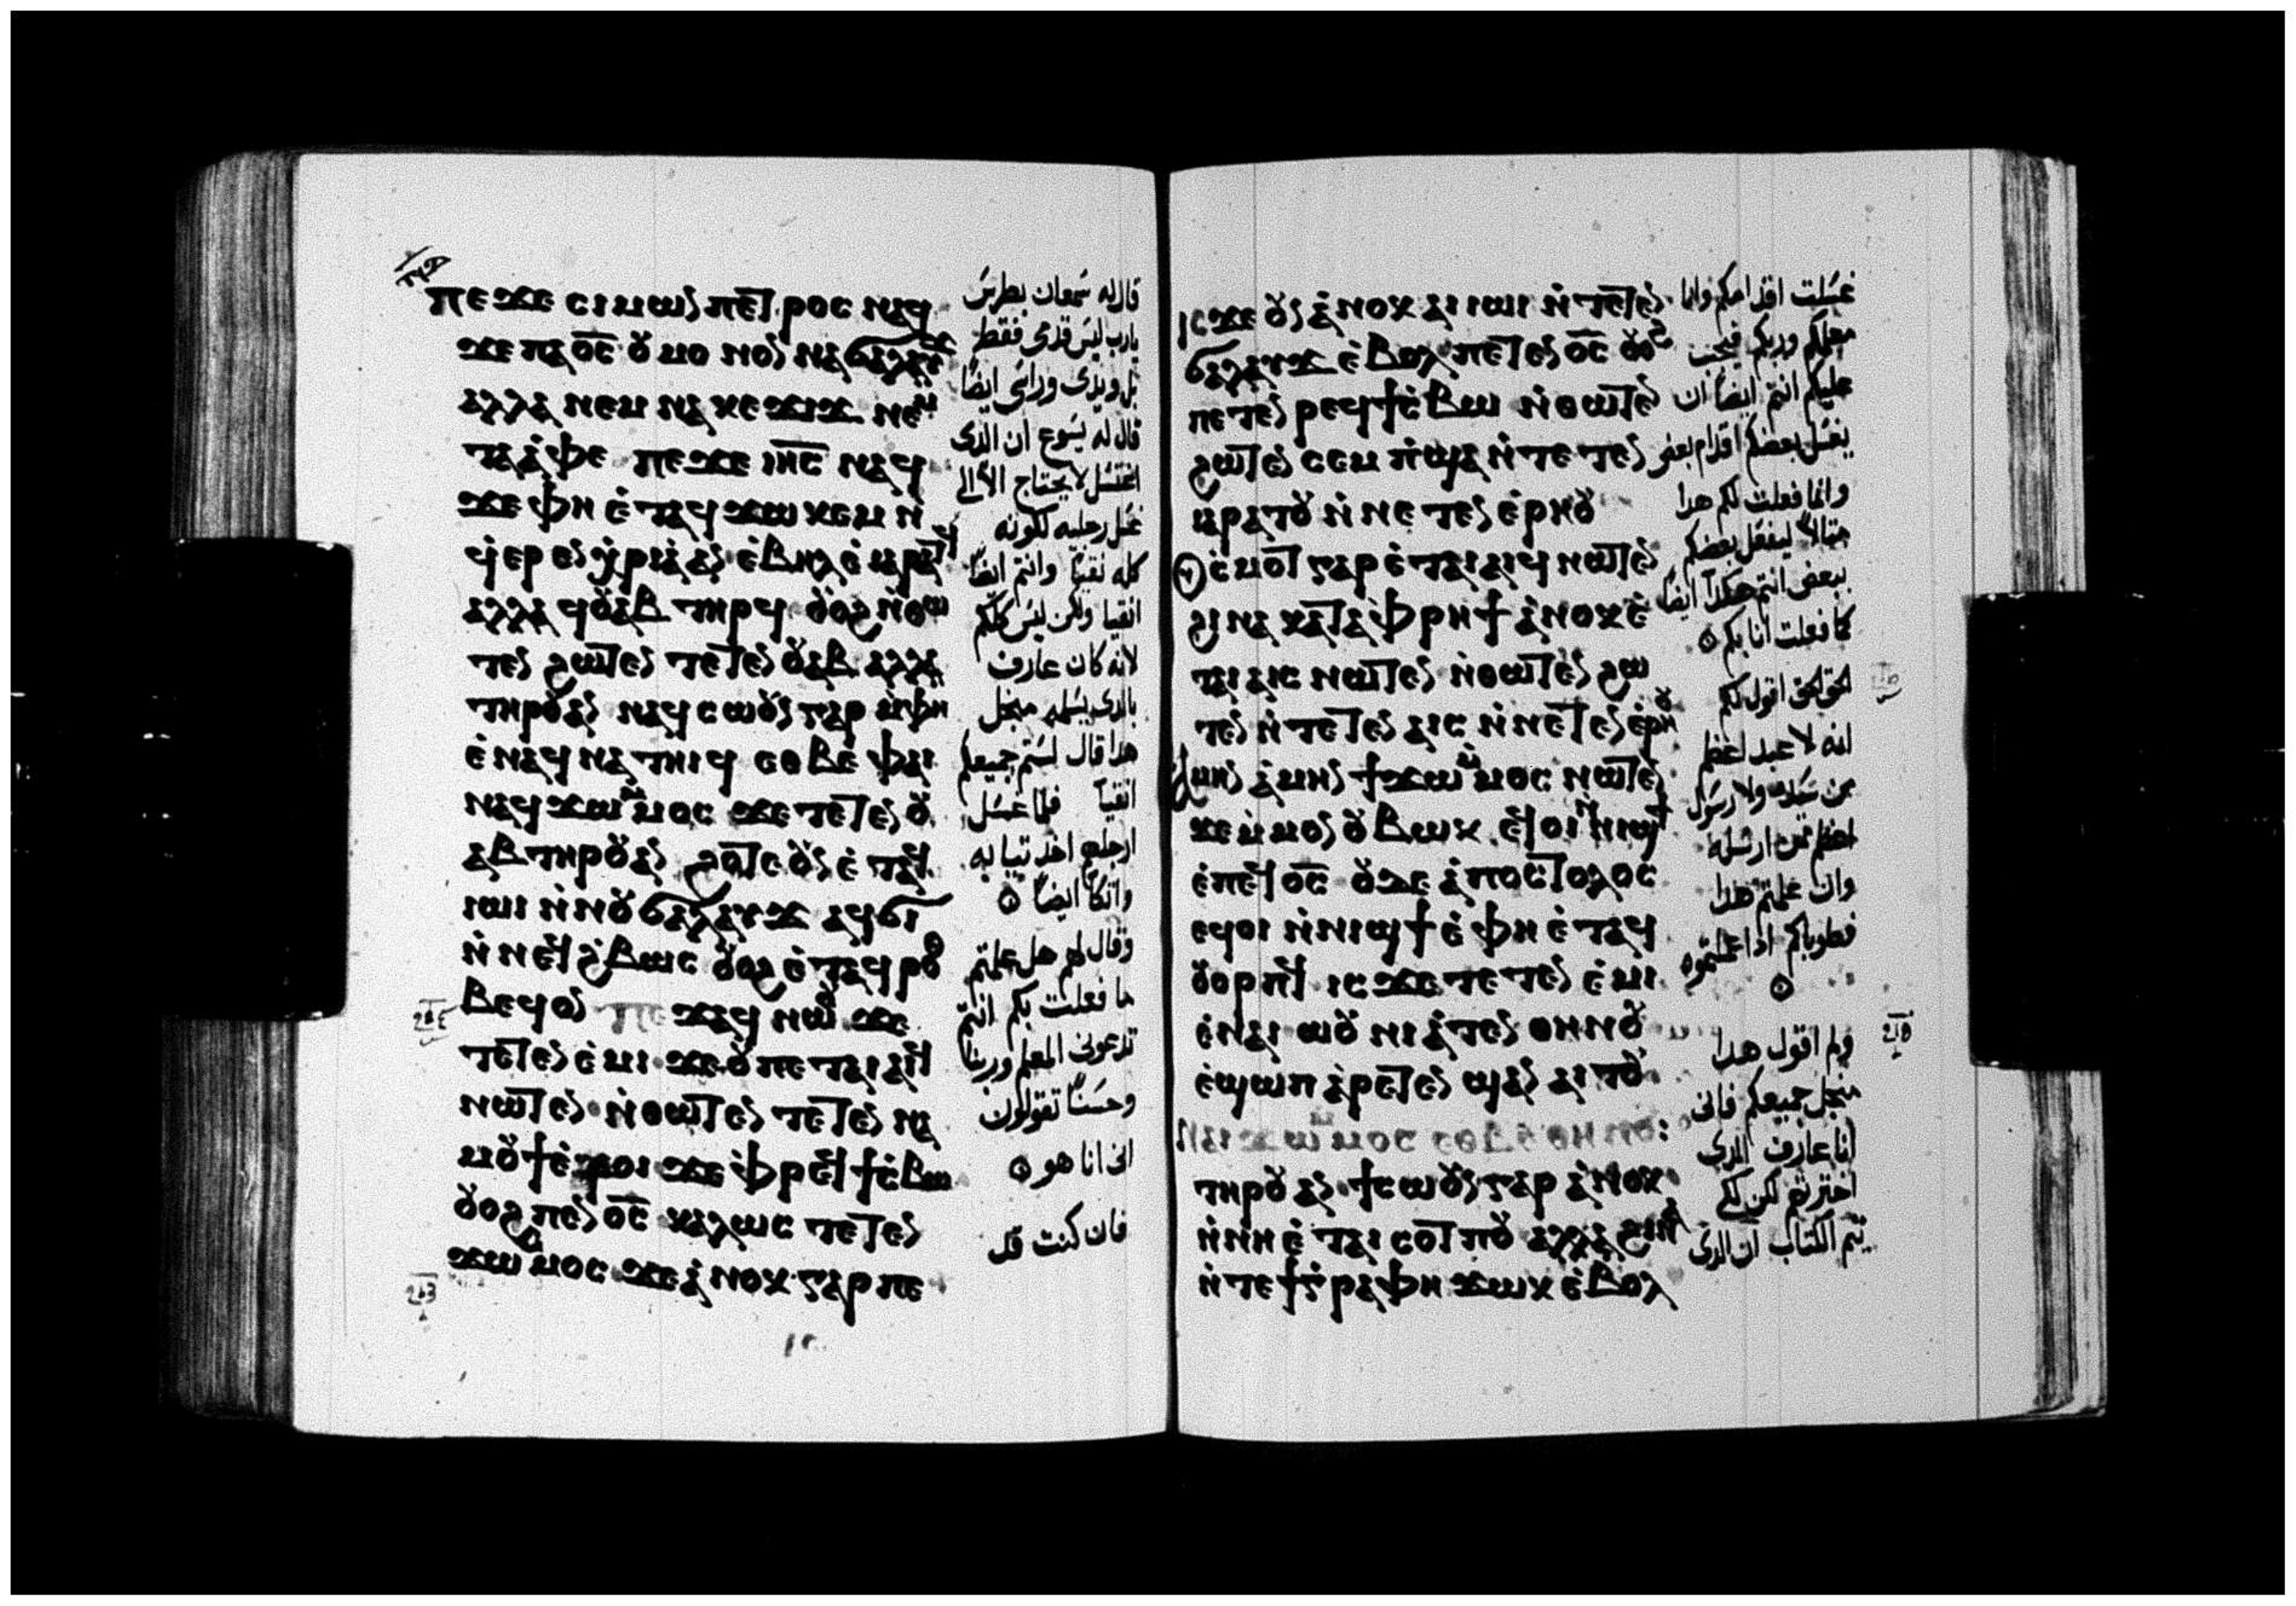 ⲡⲉϫⲉ ⲥⲓⲙⲱⲛ ⲡⲉⲧⲣⲟⲥ ⲛⲁϥ
ϫⲉ ⲡⲁⲟ̅ⲥ̅ ⲟⲩ ⲙⲟⲛⲟⲛ ⲛⲁϭⲁⲗⲁⲩϫ
ⲁⲗⲗⲁ ⲛⲉⲙ ⲛⲁⲕⲉϫⲓϫ ⲛⲉⲙ
ⲧⲁⲁ̀ⲫⲉ ⲡⲉϫⲉ ⲓⲏ̅ⲥ̅ ⲛⲁϥ
ϫⲉ ⲫⲏ ⲉ̀ⲧⲁϥϫⲱⲕⲉⲙ ⲛ̀
ϥ̀ⲉⲣⲉⲛⲭ̀ⲣⲓⲁ̀ ⲁⲛ ⲉ̀ⲃⲏⲗ ⲉ̀ⲓⲁⲣⲁⲧϥ
ⲁⲗⲗⲁ ϥⲟⲩⲁⲃ ⲧⲏⲣϥ ⲟⲩⲟϩ ⲛ̀ⲑⲱ
ⲧⲉⲛ ϩⲱⲧⲉⲛ ⲧⲉⲧⲉⲛⲟⲩⲁⲃ ⲁⲗⲗⲁ
ⲧⲏⲣⲟⲩ ⲁⲛ ⲛⲁϥⲥⲱⲟⲩⲛ ⲅⲁⲣ ⲙ̀ⲫⲏ
ⲉ̀ⲛⲁϥⲛⲁⲧⲏⲓϥ ⲉⲑⲃⲉ ⲫⲁⲓ
ⲛⲁϥϫⲱ ⲙ̀ⲙⲟⲥ ϫⲉ ⲧⲉⲧⲉⲛⲟⲩ
ⲁⲃ ⲧⲏⲣⲟⲩ ⲁⲛ ϩⲟⲧⲉ ⲟⲩⲛ ⲉ̀ⲧⲁϥ
ⲓⲱⲓ ⲛ̀ⲛⲟⲩϭⲁⲗⲁⲩϫ ⲁϥϭⲓ
ⲛ̀ⲛⲉϥϩ̀ⲃⲱⲥ ⲟⲩⲟϩ ⲉ̀ⲧⲁϥⲣⲟ
ⲑⲃⲉϥ ⲟⲛ ⲡⲉϫⲁϥ ⲛⲱⲟⲩ ϫⲉ
ⲧⲉⲧⲉⲛⲉ̀ⲙⲓ ϫⲉ ⲟⲩ ⲡⲉⲧⲁⲓⲁⲓϥ
ⲛⲱⲧⲉⲛ ⲛ̀ⲑⲱⲧⲉⲛ ⲧⲉⲧⲉⲛ
ⲙⲟⲩϯ ⲉ̀ⲣⲟⲓ ϫⲉ ⲫ̀ⲣⲉϥϯⲥ̀ⲃⲱ
ⲟⲩⲟϩ ⲡⲉⲛⲟ̅ⲥ̅ ⲕⲁⲗⲱⲥ ⲧⲉⲧⲉⲛ
ϫⲱ ⲙ̀ⲙⲟⲥ ϫⲉ ⲁ̀ⲛⲟⲕ ⲅⲁⲣ ⲡⲉ
قال له سمعان بطرس
يارب ليس قدمى فقط
بل ويدى وراسى ايضًا
قال له يسوع ان الذى
اغتسل لا يحتاج الا الى
غسل رجليه لكونه
كله نقيا وانتم ايضًا
انقيا ولكن ليس كلكم
لانه كان عارف
بالدى يسلمه منجل
هدا قال لستم جميعكم
انقيا فلما غسل
ارجلهم اخد تيابه
واتكا ايضًا
وقال لهم هل علمتم
ما فعلت بكم انتم
تدعونى المعلم وربنا
وحسنًا تقولون
انى انا هو
فان كنت قد
ⲓⲥϫⲉ ⲟⲩⲛ ⲁ̀ⲛⲟⲕ ⲁⲓⲓⲱⲓ ⲛ̀ⲛⲉⲧⲉⲛ
ϭⲁⲗⲁⲩϫ ⲉ̀ⲃⲟⲗ ⲡⲉⲧⲉⲛⲟ̅ⲥ̅ ⲟⲩⲟϩ
ⲡⲉⲧⲉⲛⲣⲉϥϯⲥ̀ⲃⲱ ⲛ̀ⲑⲱⲧⲉⲛ
ϩⲱⲧⲉⲛ ⲥⲉⲙ̀ⲡϣⲁ ⲛ̀ⲧⲉⲧⲉⲛ
ⲓⲁⲣⲁⲧⲟⲩ ⲛ̀ⲛⲉⲧⲉⲛⲉⲣⲏⲟⲩ
ⲥ̀ⲙⲟⲧ ⲅⲁⲣ ⲉ̀ⲧⲁⲓⲁⲓϥ ⲛⲱⲧⲉⲛ
ϩⲓⲛⲁ ⲕⲁⲧⲁ ⲫ̀ⲣⲏϯ ⲁ̀ⲛⲟⲕ ⲉ̀
ⲧⲁⲓⲁⲓⲥ ⲛⲱⲧⲉⲛ ⲛ̀ⲑⲱⲧⲉⲛ ϩⲱ
ⲧⲉⲛ ⲛ̀ⲧⲉⲧⲉⲛⲁⲓⲥ ⲛ̀ⲛⲉⲧⲉⲛⲉⲣⲏⲟⲩ
ⲁ̀ⲙⲏⲛ ⲁ̀ⲙⲏⲛ ϯϫⲱ ⲙ̀ⲙⲟⲥ ⲛⲱⲧⲉⲛ
ϫⲉ ⲙ̀ⲙⲟⲛ ⲟⲩⲃⲱⲕ ⲉϥⲟⲓ ⲛ̀ⲛⲓϣϯ
ⲉ̀ⲡⲉϥⲟ̅ⲥ̅ ⲟⲩⲇⲉ ⲁ̀ⲡⲟⲥⲧⲟⲗⲟⲥ
ⲉϥⲟⲓ ⲛ̀ⲛⲓϣϯ ⲉ̀ⲫⲏ ⲉ̀ⲧⲁϥ
ⲟⲩⲟⲣⲡϥ ⲓⲥϫⲉ ⲧⲉⲧⲉⲛⲉ̀ⲙⲓ
ⲉ̀ⲛⲁⲓ ⲱⲟⲩⲛⲓⲁ̀ⲧⲉⲛ ⲑⲏⲛⲟⲩ
ⲉ̀ϣⲱⲡ ⲁ̀ⲣⲉⲧⲉⲛϣⲁⲛⲁⲓⲧⲟⲩ
ⲧⲏⲣⲟⲩ ⲁⲛ ϯⲥⲱⲟⲩⲛ ⲅⲁⲣ ⲁ̀ⲛⲟⲕ
ⲛ̀ⲛⲏ ⲉ̀ⲧⲁⲓⲥⲟⲧⲡⲟⲩ ⲁⲗⲗⲁ ϩⲓⲛⲁ
ⲛ̀ⲧⲉ ϯⲅ̀ⲣⲁⲫⲏ ϫⲱⲕ ⲉ̀ⲃⲟⲗ
غسلت اقدامكم وانا
معلمكم وربكم فيجب
عليكم انتم ايضا ان
يغسل بعضكم اقدام بعض
وانما فعلت لكم هدا
متالا ليفعل بعضكم
ببعض انتم هكدا ايضا
كما فعلت انا بكم
الحق الحق اقول لكم
انه لا عبد اعظم
من سيده ولا رسول
اعظم ممن ارسله
وان علمتم هدا
فطوباكم ادا عملتموه
ولم اقول هدا
منجل جميعكم فانى
انا عارف الدى
اخترتهم لكن لكى
يتم الكتاب ان الدى